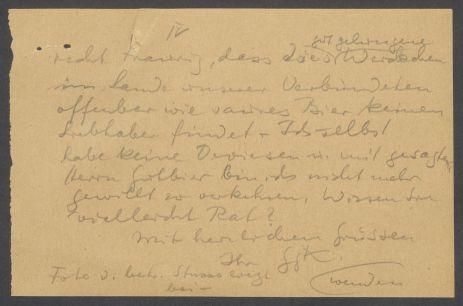 IV
gut gelungene
recht traurig, dass dies Werkchen
im Lande unserer Verbündeten
offenbar wie saures Bier keinen
Liebhaber findet. Ich selbst
habe keine Devisen u. mit gesagtem
Herrn bin ich nicht mehr
gewillt zu verkehren, Wissen Sie
vielleicht Rat?
Mit herzlichen Grüssen
Ihr
Foto v. betr. liegt
bei -
wenden